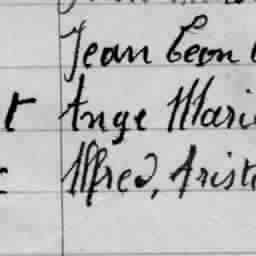 Jean Leon
t Ange Mari
Alfred, Arist